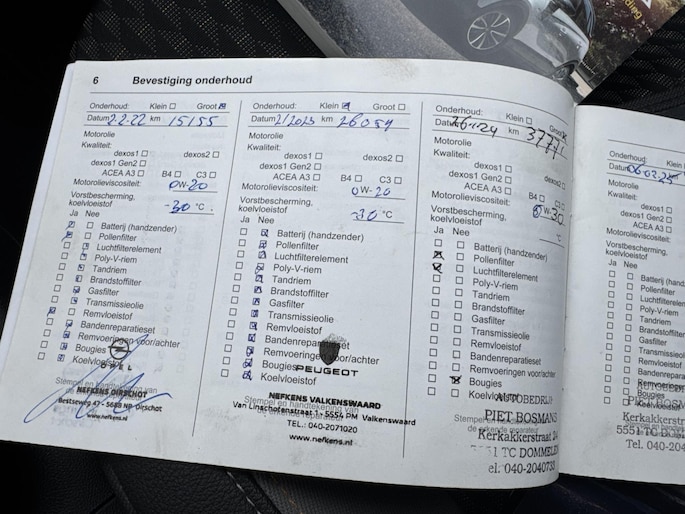 6 Bevestiging onderhoud
Onderhoud: Klein Groot
Datum 2.2.22 km 15155
Motorolie
Kwaliteit:
dexos1 dexos2
dexos1 Gen2
ACEA A3 B4 C3
Motorolieviscositeit: 0W-20
Vorstbescherming,
koelvloeistof -30 °C
Ja Nee
Batterij (handzender)
Pollenfilter
Luchtfilterelement
Poly-V-riem
Tandriem
Brandstoffilter
Gasfilter
Transmissieolie
Remvloeistof
Bandenreparatieset
Remvoeringen voor/achter
Bougies
Koelvloeistof
OPEL
Stempel en handtekening van
NEFKENS OIRSCHOT
Bestseweg 47 - 5688 NP Oirschot
www.nefkens.nl
Onderhoud: Klein Groot
Datum /2023 km
Motorolie
Kwaliteit:
dexos1 dexos2
dexos1 Gen2
ACEA A3 B4 C3
Motorolieviscositeit: 0W-20
Vorstbescherming,
koelvloeistof -30 °C
Ja Nee
Batterij (handzender)
Pollenfilter
Luchtfilterelement
Poly-V-riem
Tandriem
Brandstoffilter
Gasfilter
Transmissieolie
Remvloeistof
Bandenreparatieset
Remvoeringen voor/achter
Bougies
Koelvloeistof
PEUGEOT
NEFKENS VALKENSWAARD
Stempel en handtekening van
Van Linschotenstraat 1 - 5554 PM Valkenswaard
TEL.: 040-2071020
www.nefkens.nl
Onderhoud: Klein Groot
Datum km
Motorolie
Kwaliteit:
dexos1 dexos2
dexos1 Gen2
ACEA A3 B4 C3
Motorolieviscositeit:
Vorstbescherming,
koelvloeistof °C
Ja Nee
Batterij (handzender)
Pollenfilter
Luchtfilterelement
Poly-V-riem
Tandriem
Brandstoffilter
Gasfilter
Transmissieolie
Remvloeistof
Bandenreparatieset
Remvoeringen voor/achter
Bougies
AUTOBEDRIJF
PIET BOSMANS
Kerkakkerstraat 24
5551 TC DOMMELEN
el. 040-2040733
Onderhoud: Klein
Datum 06.02.25
Motorolie
Kwaliteit:
dexos1
dexos1 Gen2
ACEA A3
Motorolieviscositeit:
Vorstbescherming,
koelvloeistof
Ja Nee
Batterij (hand
Pollenfilter
Luchtfiltereleme
Poly-V-riem
Tandriem
Brandstoffilte
Gasfilter
Transmissieo
Remvloeistof
Bandenrepara
Remvoeringe
Bougies
Kerkakkerstr
5551 TC D
el. 040-20